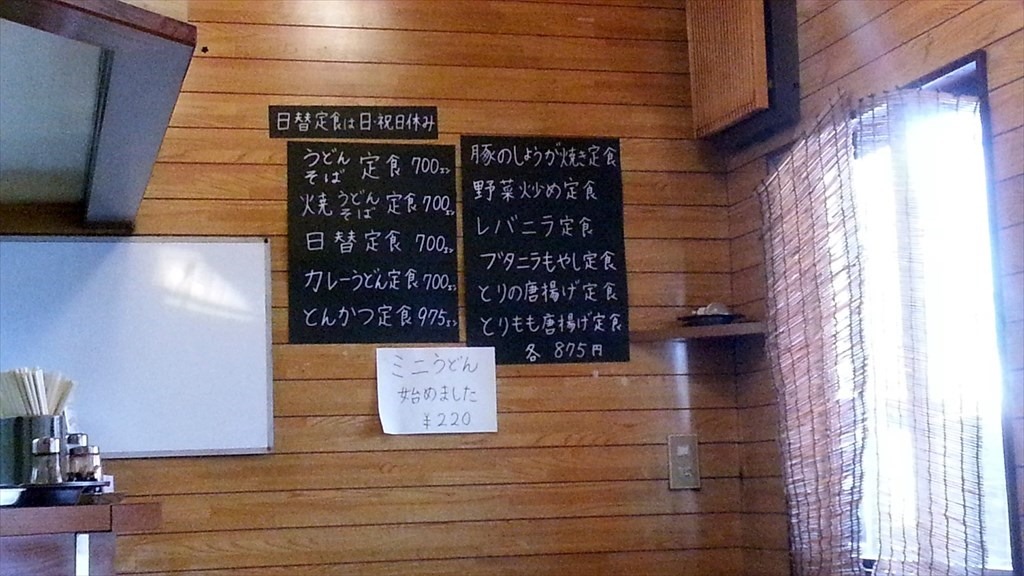 日替定食は日・祝日休み
うどん
そば 定食 700エン
焼 うどん
そば 定食 700エン
日替定食 700エン
カレーうどん定食 700エン
とんかつ定食 975エン
豚のしょうが焼き定食
野菜炒め定食
レバニラ定食
ブタニラもやし定食
とりの唐揚げ定食
とりもも唐揚げ定食
各 875円
ミニうどん
始めました
¥220